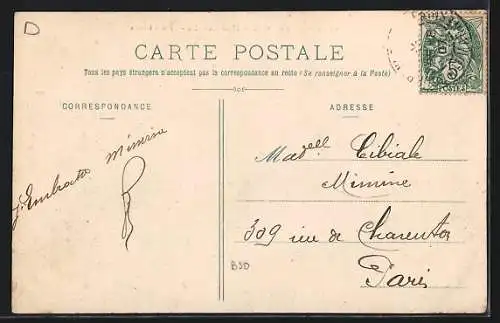 D
CARTE POSTALE
Tous les pays étrangers n'acceptent pas la correspondance au recto (Se renseigner à la Poste)
CORRESPONDANCE
ADRESSE
Mimine
Mazell Cibiale
Mimine
309 rue de Charenton
Paris
B3D
POSTES